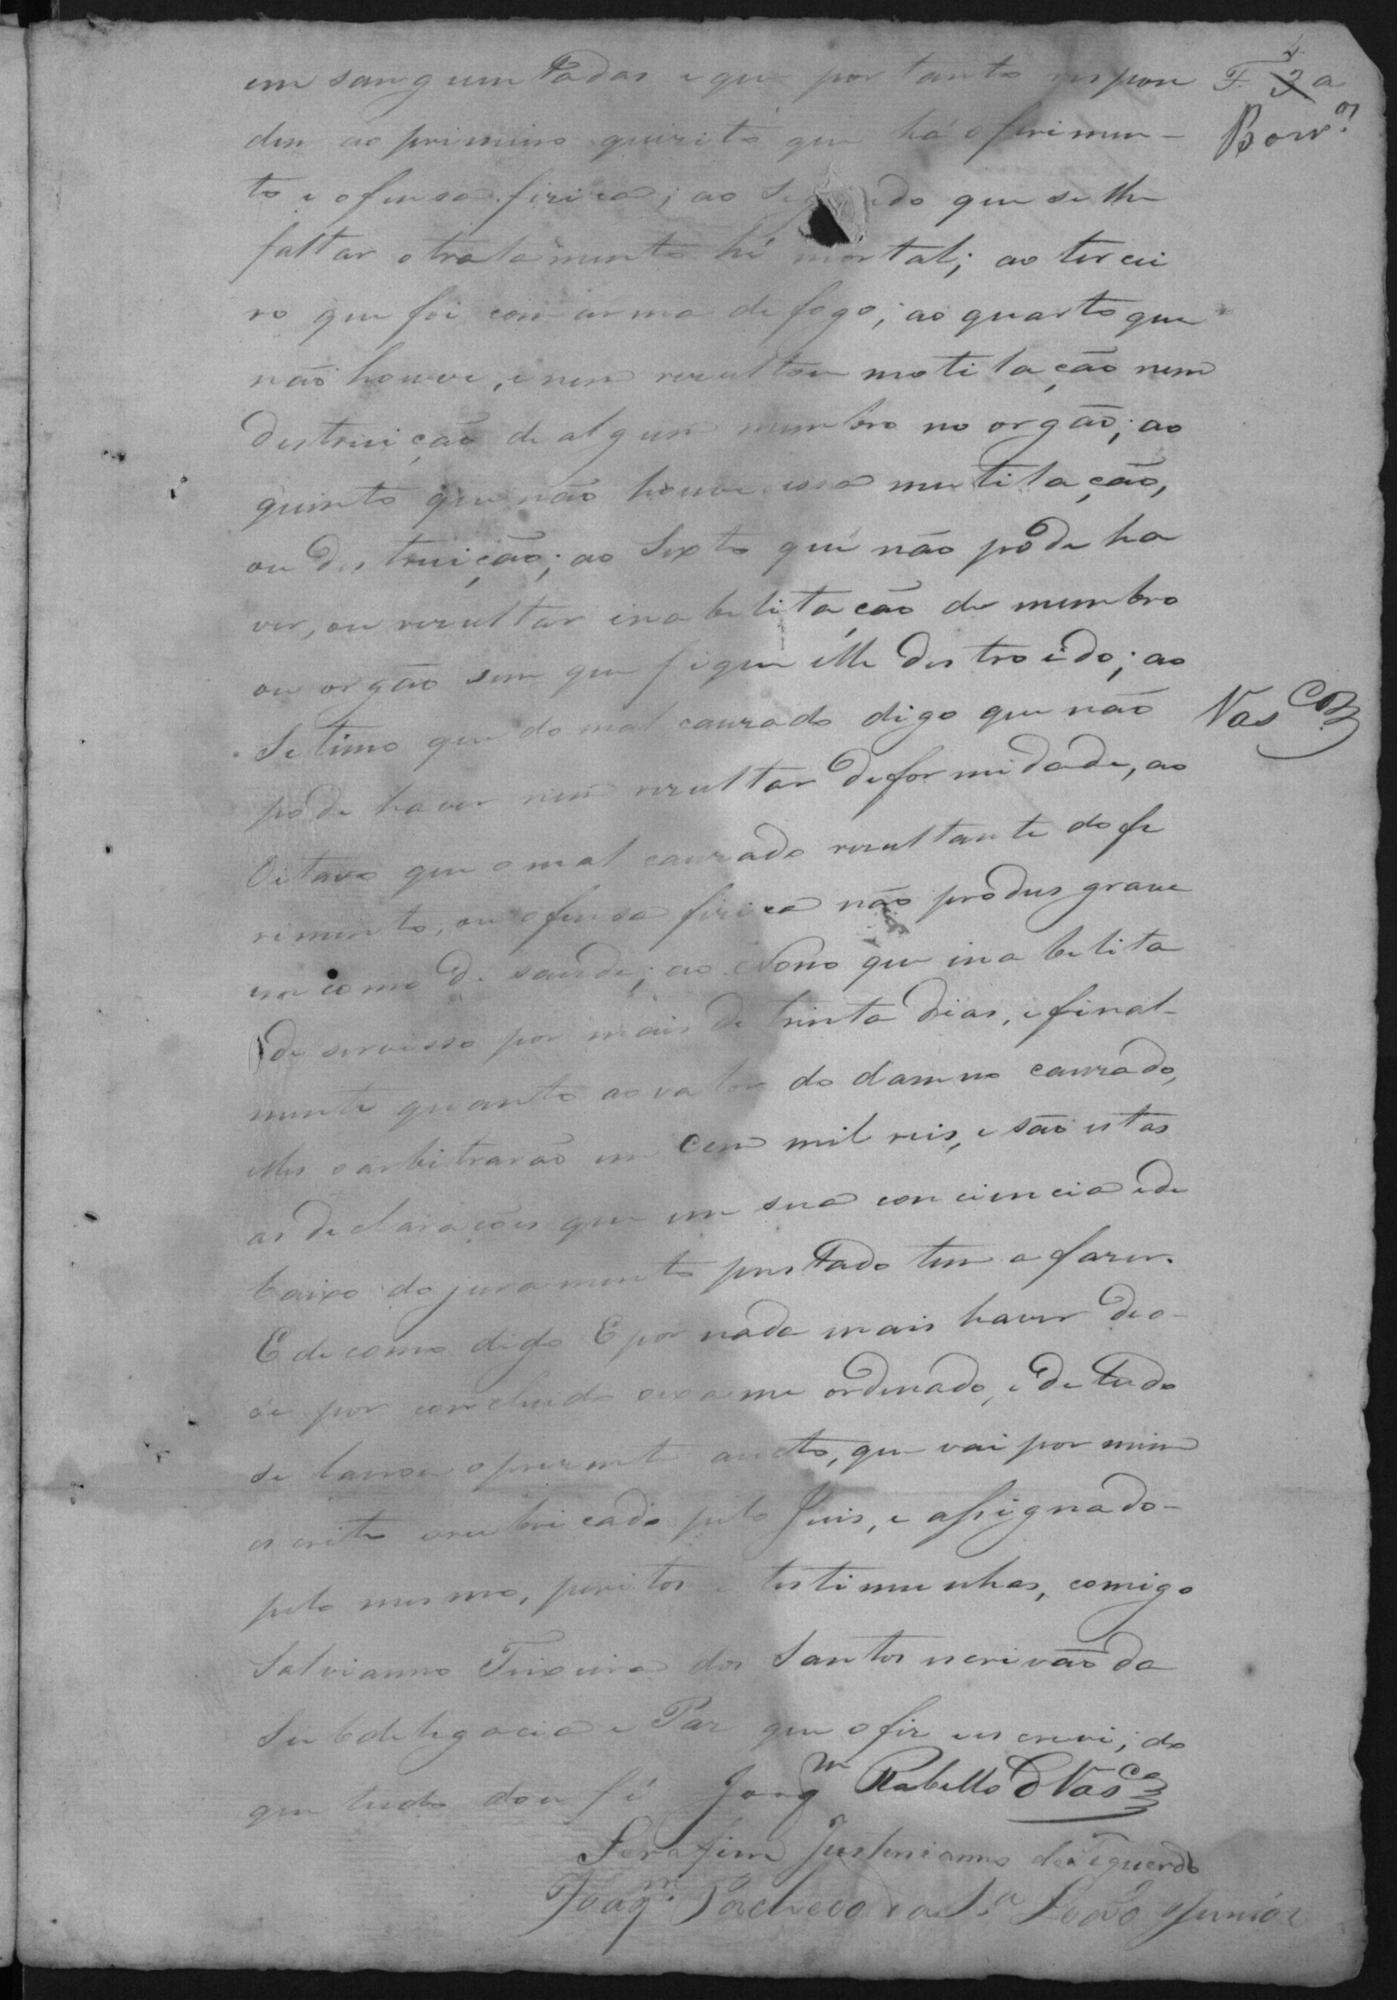 em sanguentadas e que portanto respon
dem ao primeiro quezito que há o ferimen-
to e ofensa fizica; ao Segundo que se lhe
faltar o tratamento hé mortal; ao tercei
ro que foi com arma de fogo; ao quarto que
não houve, e nem rezultou motilação nem
destruição de algum membro no orgão; ao
quinto que não houve essa mutilação,
ou destruição; ao Sexto que não póde ha
ver, ou rezultar inabelitação de membro
ou orgão sem que fique élle destroido; ao
Setimo que do mal cauzado digo que não
póde haver nem rezultar deformidade, ao
Oitavo que o mal cauzado rezultante do fe
rimento, ou ofensa fizica não produs grave
encomo d. saude; ao Nono que inabelita
de servisso por mais de trinta dias, e final-
mente quanto ao valor do damno cauzado,
elles o arbitrarão em Cem mil reis, e são estas
as declarações que em sua conciencia e de
baixo do juramento prestado tem a fazer.
E de como digo E por nada mais haver deo-
se por concluido o exame ordenado, e de tudo
se lavrou o prezente aucto, que vai por mim
escrito e rubricado pelo Juis, e assignado-
pelo mesmo, peritos e testimunhas, comigo
Salvianno Teixeira dos Santos escrivão da
Subdelegacia e Paz que o fiz e escrevi; do
que tudo dou fé Joaqm Rabello D Vascos
Serafim Justinianno de Figuerdo
Joaqm. Pacheco da Sa. Lobo Junior
F. 3 a
4
Vascos